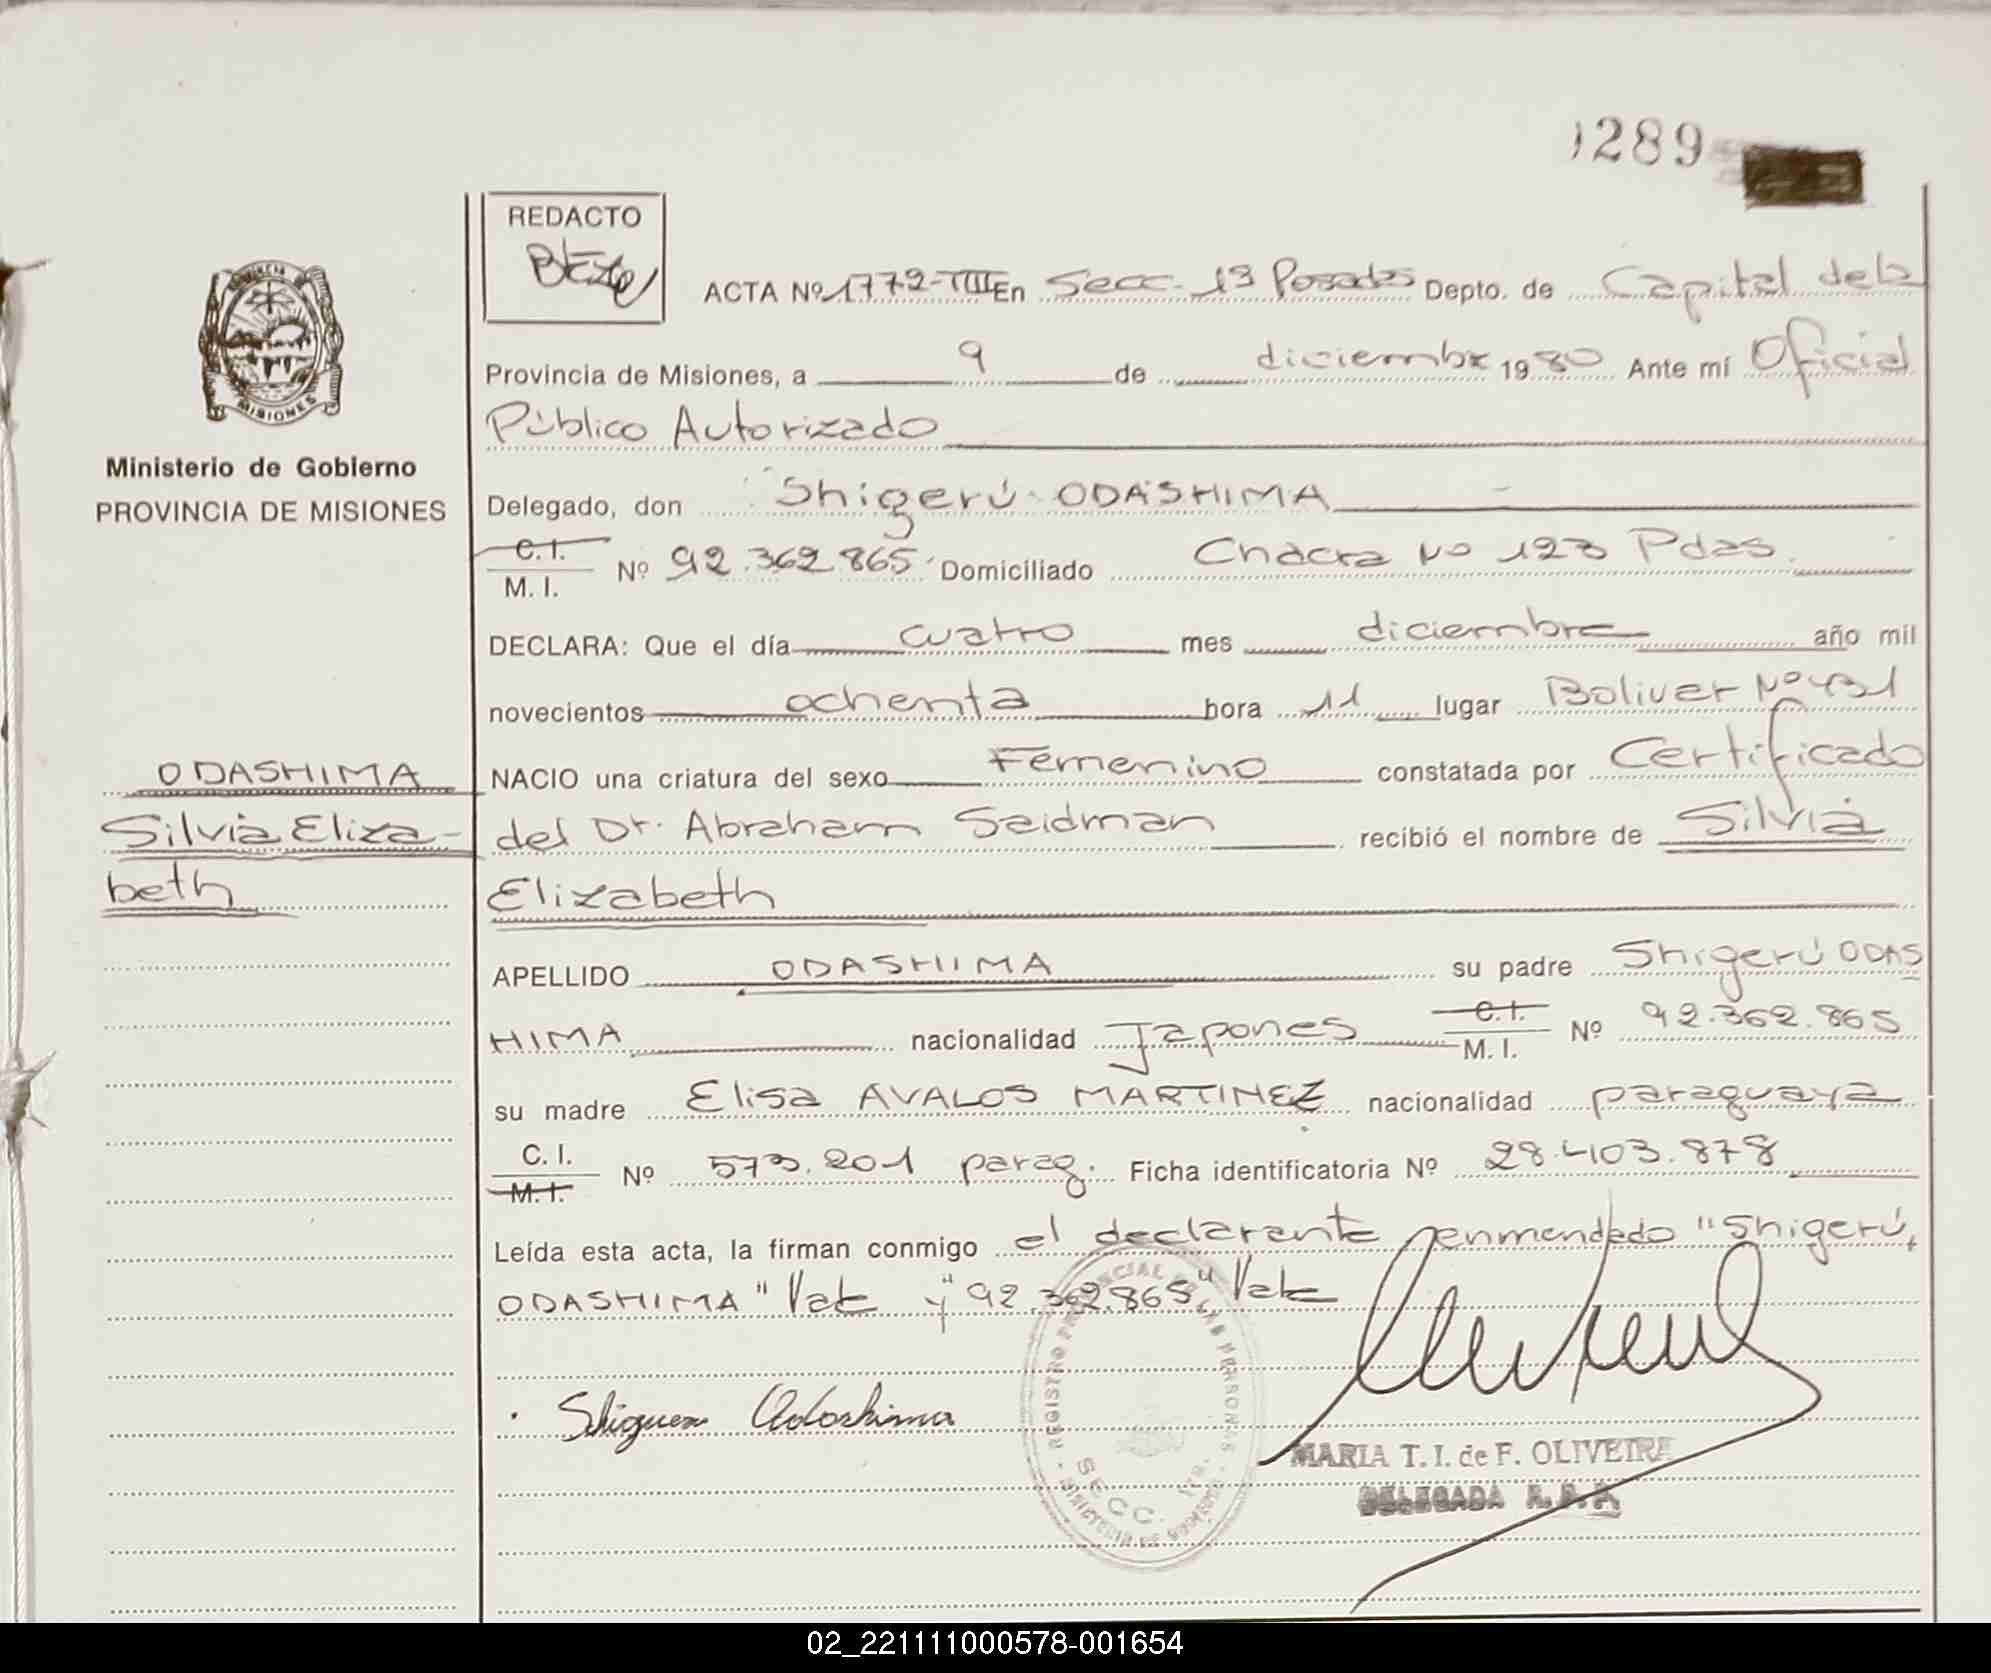 289
REDACTO
ACTA Nº 1772-TIII En Secc. 13 Posadas Depto. de Capital dela
Provincia de Misiones, a 9 de diciembre 1980 Ante mí Oficial
Público Autorizado
MISIONES
Ministerio de Gobierno
PROVINCIA DE MISIONES
Delegado, don Shigerú ODASHIMA
C.I.
M. I. Nº 92.362.865 Domiciliado Chacra Nº 123 Pdas.
DECLARA: Que el día cuatro mes diciembre año mil
novecientos ochenta hora 11 lugar Bolivar Nº 431
ODASHIMA
Silvia Eliza-
beth
NACIO una criatura del sexo Femenino constatada por Certificado
del Dr. Abraham Saidman recibió el nombre de Silvia
Elizabeth
APELLIDO ODASHIMA su padre Shigerú ODAS
HIMA nacionalidad Japones C.I. M. I. Nº 92.362.865
su madre Elisa AVALOS MARTINEZ nacionalidad paraguaya
C. I.
M. I. Nº 573.201 parag. Ficha identificatoria Nº 28.403.878
Leída esta acta, la firman conmigo el declarante enmendado "Shigerú,
ODASHIMA" Vale y "92.362.865" Vale
REGISTRO PROVINCIAL DE LAS PERSONAS
SECC.
Odashima
MARIA T. I. de F. OLIVEIRA
DELEGADA R. P. P.
02_221111000578-001654